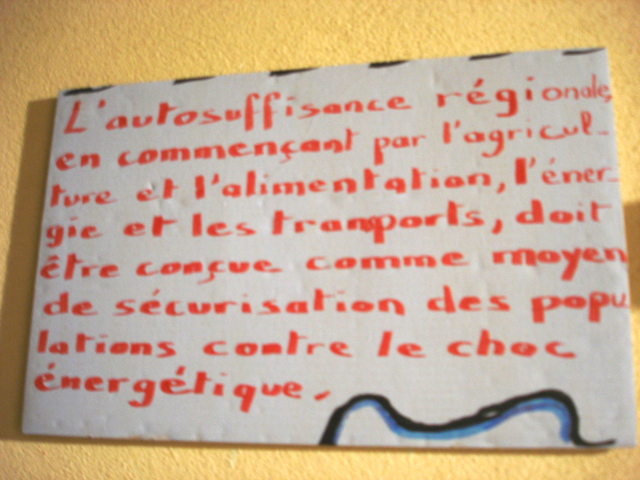 L'autosuffisance régionale,
en commençant par l'agricul-
ture et l'alimentation, l'éner-
gie et les tranports, doit
être conçue comme moyen
de sécurisation des popu
lations contre le choc
énergétique.